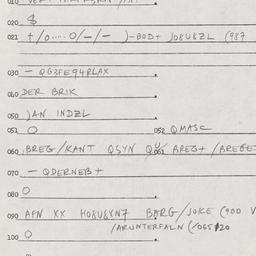 020 $
021 +/0.....0/-/- )-BOD+ JO8U8ZL (987
030 - QG3FE94RLAX
040 DER BRIK
050 JAN INDZL
051 O 052 QMASC
060 BREG/KANT QSYN 061 BREG+ /BREGE
070 - QDERNEB+
080 O
090 AFN XX HO8U8XN7 BARG/JOKE (900 V
/ARUNTERFALN (/065
100 O